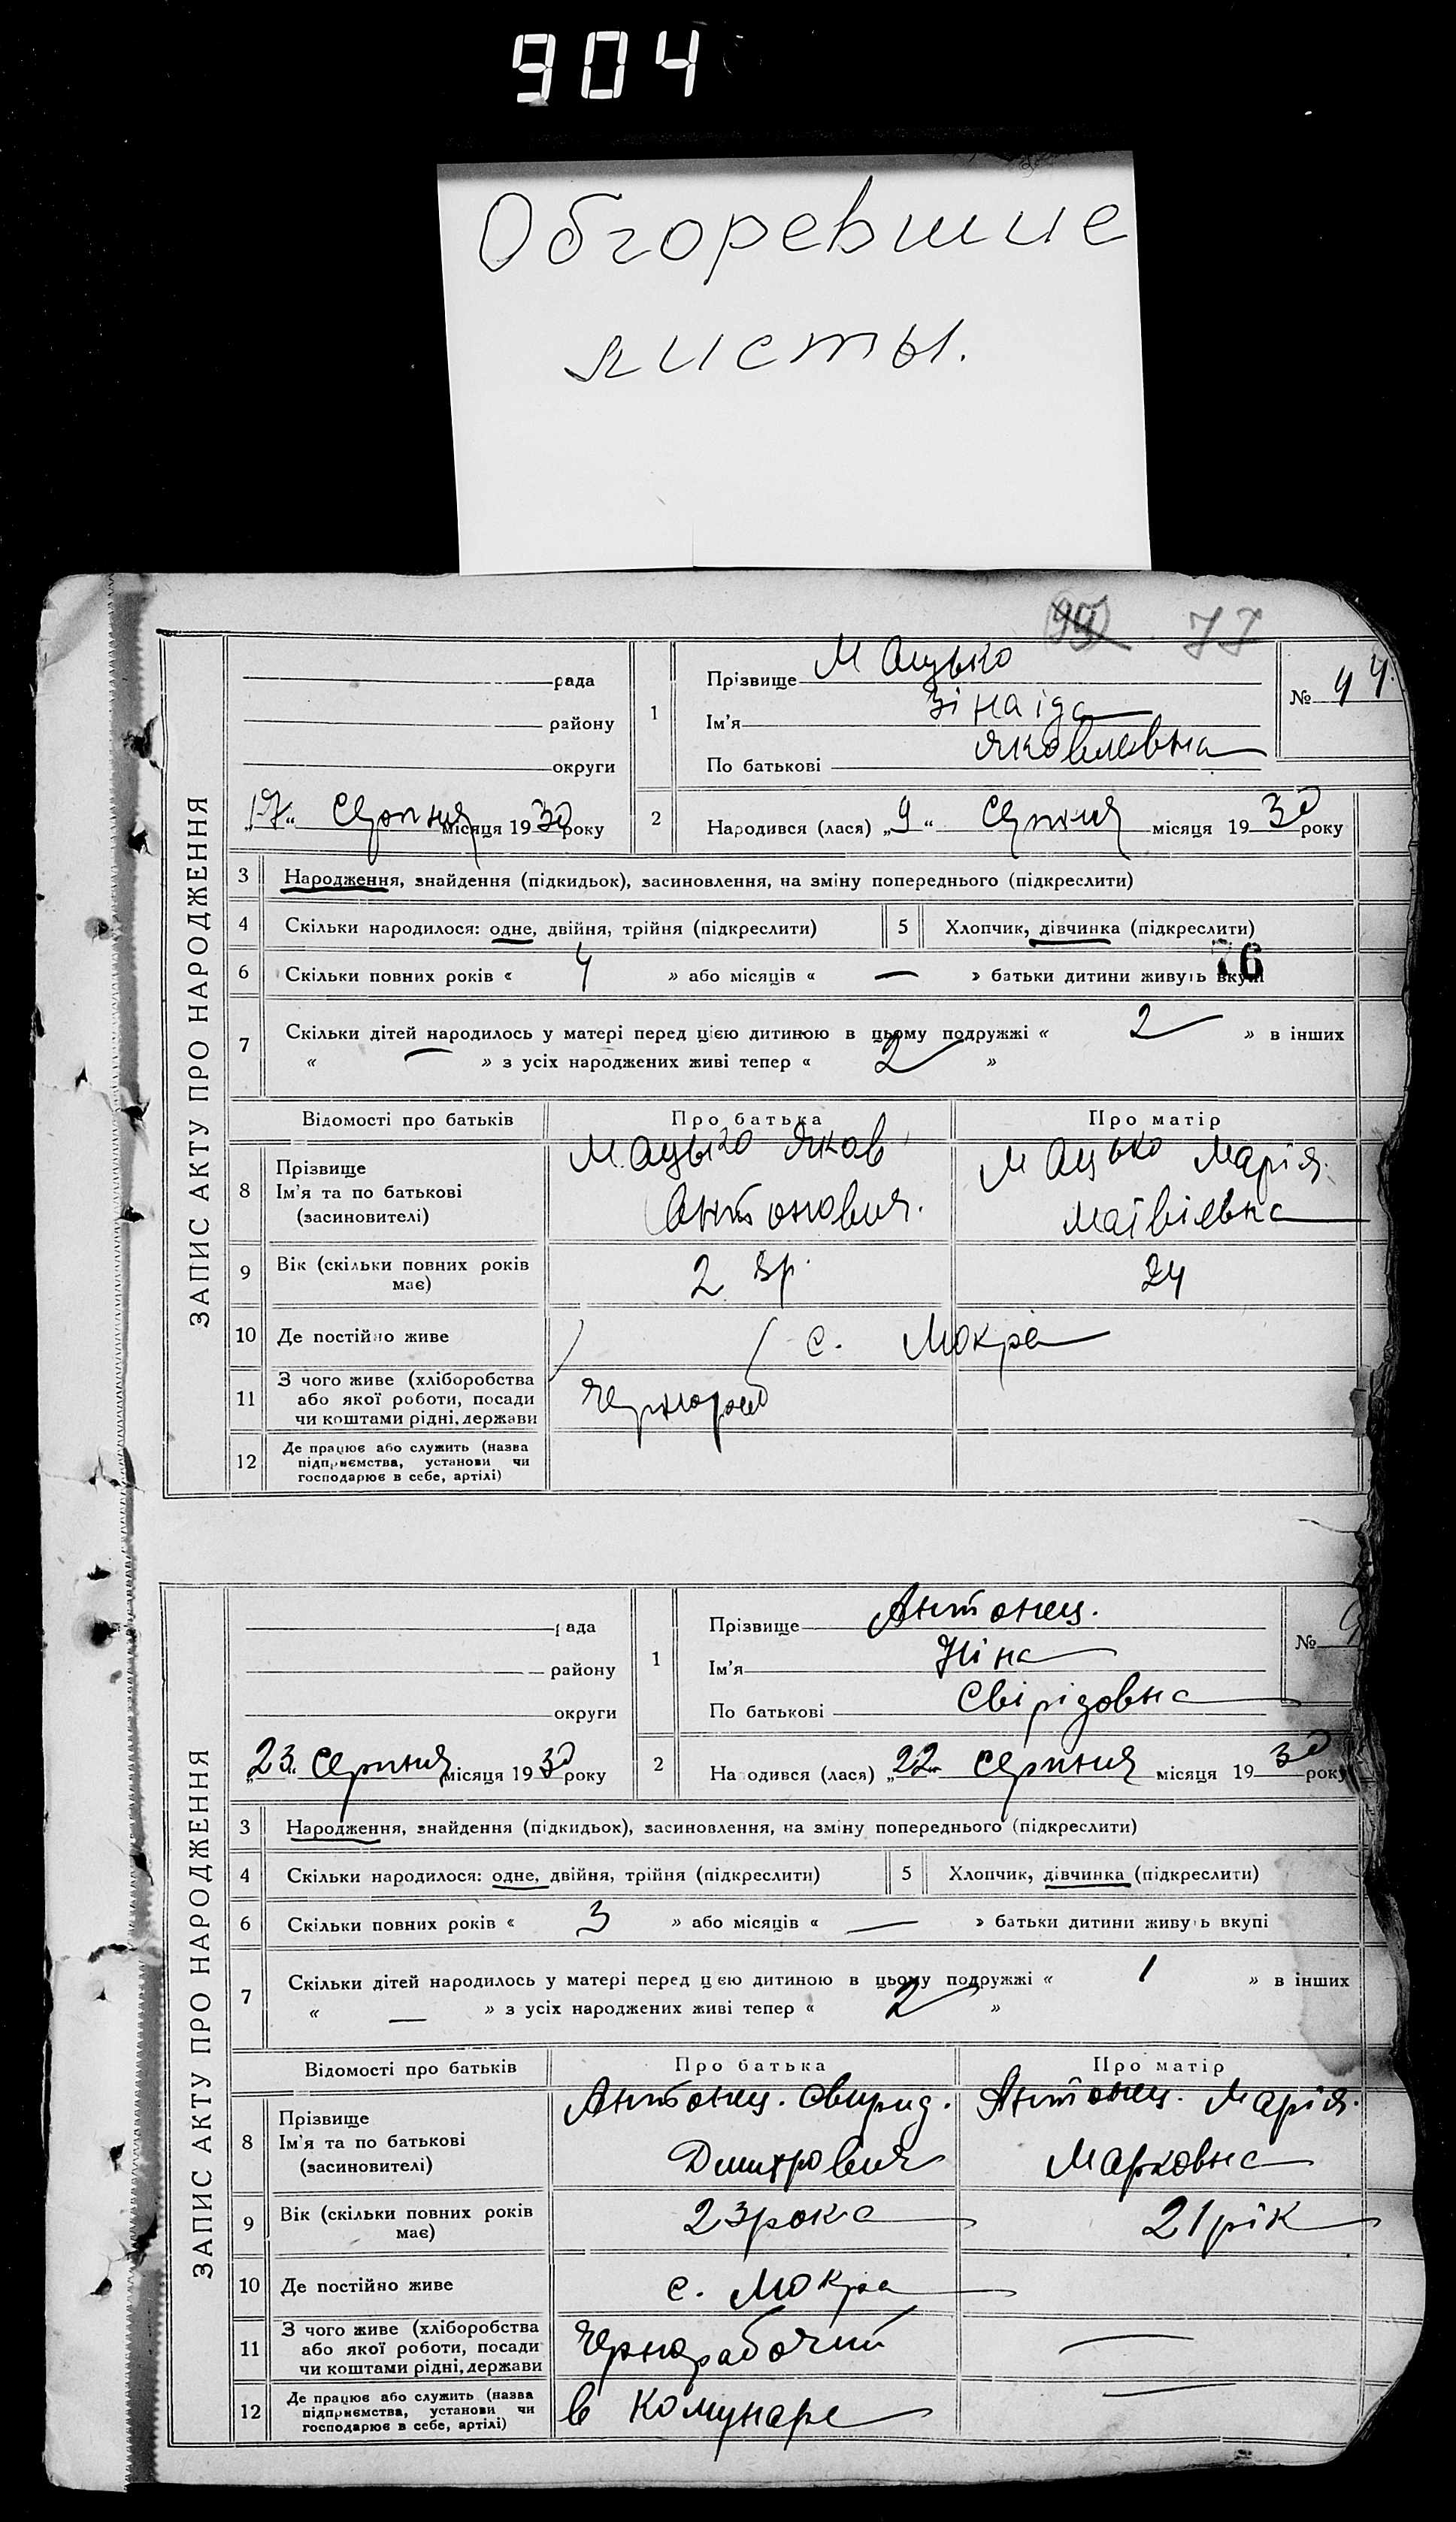 904
Обгоревшие
листы.
77
ЗАПИС АКТУ ПРО НАРОДЖЕННЯ
рада
району
округи
„17“ Серпня місяця 1930 року
1
Прізвище Мацько
Ім'я Зінаіда
По батькові Яковлевна
№ 44.
2
Народився (лася) „9“ Серпня місяця 1930 року
3 Народження, знайдення (підкидьок), засиновлення, на зміну попереднього (підкреслити)
4 Скільки народилося: одне, двійня, трійня (підкреслити) 5 Хлопчик, дівчинка (підкреслити)
76
6 Скільки повних років « 4 » або місяців « — » батьки дитини живуть вкупі
7 Скільки дітей народилось у матері перед цією дитиною в цьому подружжі « 2 » в інших
« — » з усіх народжених живі тепер « 2 »
Відомості про батьків Про батька Про матір
8 Прізвище
Ім'я та по батькові
(засиновителі)
Мацько Яков
Антонович.
Мацько Марія.
Матвіевна
9 Вік (скільки повних років
має)
24
10 Де постійно живе с. Мокра
11 З чого живе (хліборобства
або якої роботи, посади
чи коштами рідні, держави
12 Де працює або служить (назва
підприємства, установи чи
господарює в себе, артілі)
ЗАПИС АКТУ ПРО НАРОДЖЕННЯ
рада
району
округи
„23“ Серпня місяця 1930 року
1
Прізвище Антонец.
Ім'я Ніна
По батькові Свірідовна
№
2
Народився (лася) „22“ Серпня місяця 1930 року
3 Народження, знайдення (підкидьок), засиновлення, на зміну попереднього (підкреслити)
4 Скільки народилося: одне, двійня, трійня (підкреслити) 5 Хлопчик, дівчинка (підкреслити)
6 Скільки повних років « 3 » або місяців « — » батьки дитини живуть вкупі
7 Скільки дітей народилось у матері перед цією дитиною в цьому подружжі « 1 » в інших
« — » з усіх народжених живі тепер « 2 »
Відомості про батьків Про батька Про матір
8 Прізвище
Ім'я та по батькові
(засиновителі)
Антонец. Свирид.
Дмитрович
Антонец. Марія.
Марковна
9 Вік (скільки повних років
має)
23 рока
21 рік
10 Де постійно живе с. Мокра
11 З чого живе (хліборобства
або якої роботи, посади
чи коштами рідні, держави
Чернорабочий —
12 Де працює або служить (назва
підприємства, установи чи
господарює в себе, артілі)
в Комунаре —